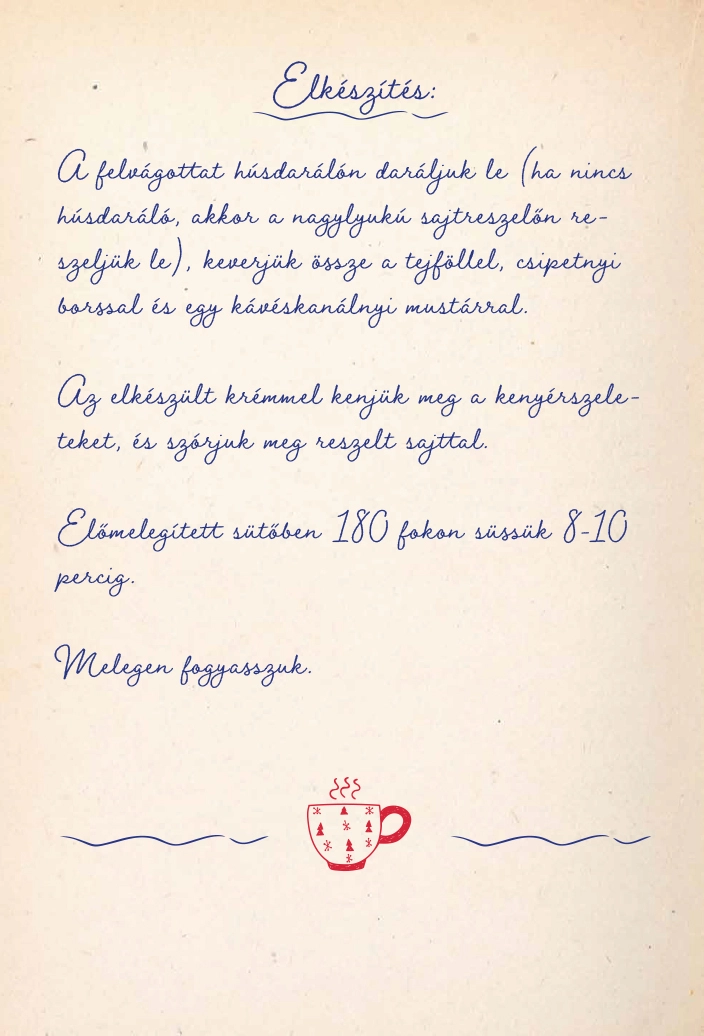 Elkészítés:
A felvágottat húsdarálón daráljuk le (ha nincs
húsdaráló, akkor a nagylyukú sajtreszelőn re-
szeljük le), keverjük össze a tejföllel, csipetnyi
borssal és egy kávéskanálnyi mustárral.
Az elkészült krémmel kenjük meg a kenyérszele-
teket, és szórjuk meg reszelt sajttal.
Előmelegített sütőben 180 fokon süssük 8-10
percig.
Melegen fogyasszuk.